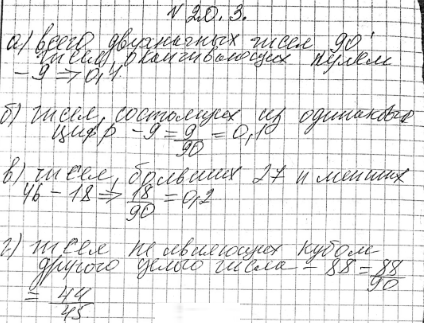 № 20.3.
а) всего двузначных чисел 90
чисел, оканчивающих нулём
- 9 ⇒ 0,1.
б) чисел, состоящих из одинаковых
цифр - 9 = 9/90 = 0,1
в) чисел, больших 27 и меньших
46 - 18 ⇒ 18/90 = 0,2
г) чисел не являющих кубом
другого целого числа - 88 = 88/90
= 44/45